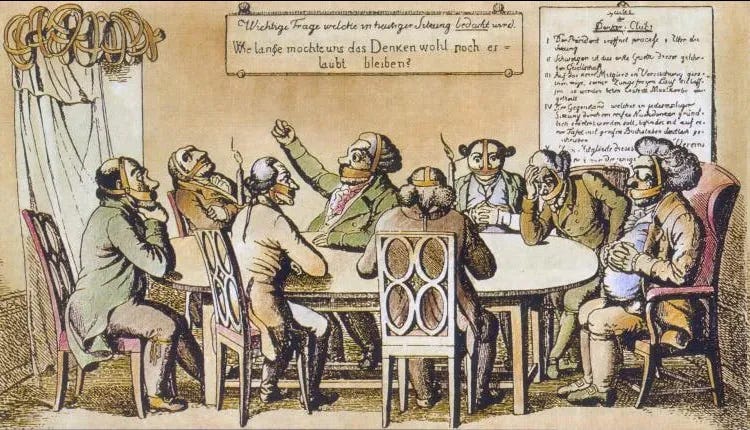 Wichtige Frage welche in heutiger Sitzung bedacht wird.
Wie lange möchte uns das Denken wohl noch er=
laubt bleiben?
der
Denker-Club.
I Der Präsident eröffnet precise 8 Uhr die
Sitzung
II Schweigen ist das erste Gesetz dieser gelehr=
ten Gesellschaft
III Auf das kein Mitglied in Versuchung gera=
then möge, seiner Zunge freyen Lauf zu lass=
sen so werden beim Eintritt Maulkörbe
ausgetheilt
IV Der Gegenstand, welcher in jedesmaliger
Sitzung durch ein reifes Nachdenken gründ=
lich erörtert werden soll, befindet sich auf ei=
ner Tafel mit grossen Buchstaben deutlich ge=
schrieben